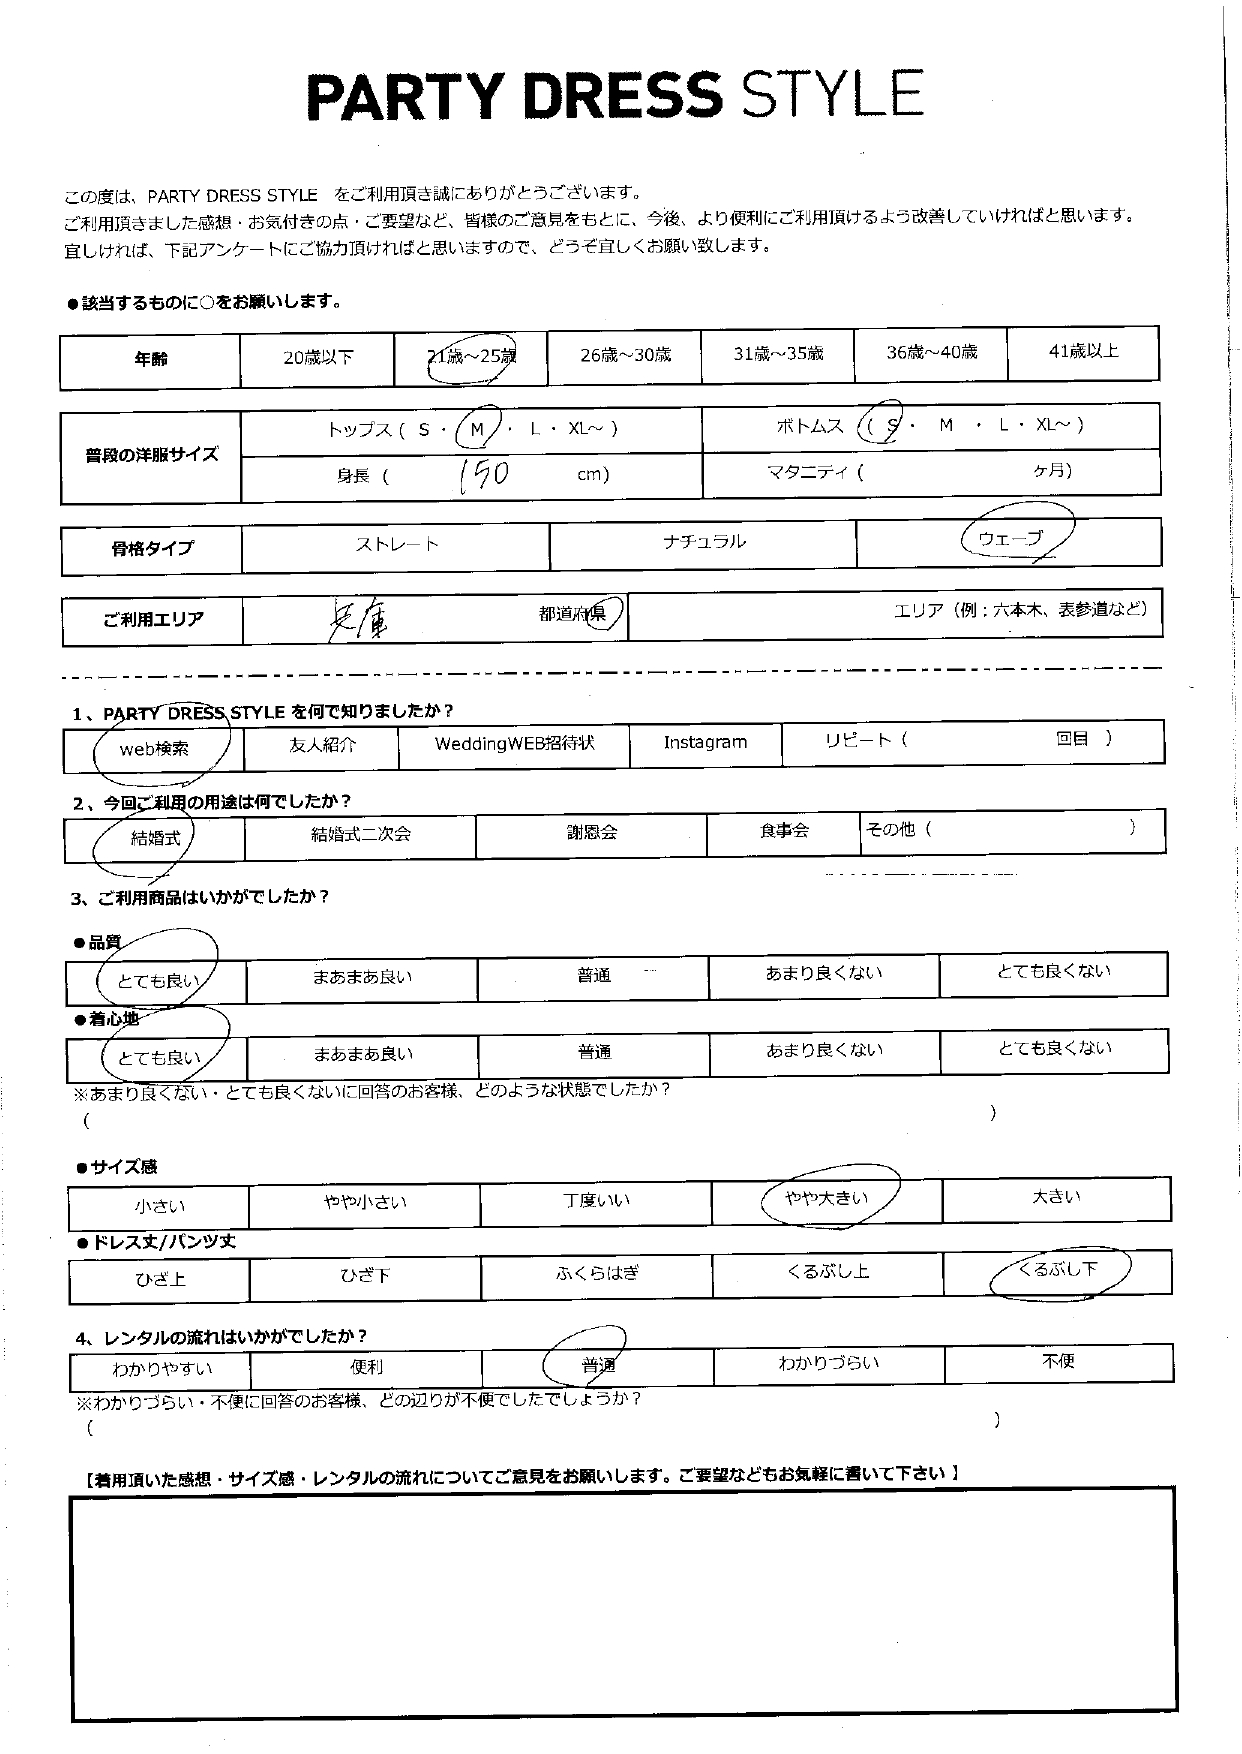 PARTY DRESS STYLE
この度は、PARTY DRESS STYLE をご利用頂き誠にありがとうございます。
ご利用頂きました感想・お気付きの点・ご要望など、皆様のご意見をもとに、今後、より便利にご利用頂けるよう改善していければと思います。
宜しければ、下記アンケートにご協力頂ければと思いますので、どうぞ宜しくお願い致します。
●該当するものに○をお願いします。
年齢 20歳以下 21歳～25歳 26歳～30歳 31歳～35歳 36歳～40歳 41歳以上
普段の洋服サイズ トップス ( S ・ M ・ L ・ XL～ ) ボトムス ( S ・ M ・ L ・ XL～ )
身長 ( 150 cm) マタニティ ( ヶ月)
骨格タイプ ストレート ナチュラル ウェーブ
ご利用エリア 兵庫 都道府県 エリア（例：六本木、表参道など）
1、PARTY DRESS STYLE を何で知りましたか？
web検索 友人紹介 WeddingWEB招待状 Instagram リピート ( 回目 )
2、今回ご利用の用途は何でしたか？
結婚式 結婚式二次会 謝恩会 食事会 その他 ( )
3、ご利用商品はいかがでしたか？
●品質
とても良い まあまあ良い 普通 あまり良くない とても良くない
●着心地
とても良い まあまあ良い 普通 あまり良くない とても良くない
※あまり良くない・とても良くないに回答のお客様、どのような状態でしたか？
( )
●サイズ感
小さい やや小さい 丁度いい やや大きい 大きい
●ドレス丈/パンツ丈
ひざ上 ひざ下 ふくらはぎ くるぶし上 くるぶし下
4、レンタルの流れはいかがでしたか？
わかりやすい 便利 普通 わかりづらい 不便
※わかりづらい・不便に回答のお客様、どの辺りが不便でしたでしょうか？
( )
【着用頂いた感想・サイズ感・レンタルの流れについてご意見をお願いします。ご要望などもお気軽に書いて下さい 】